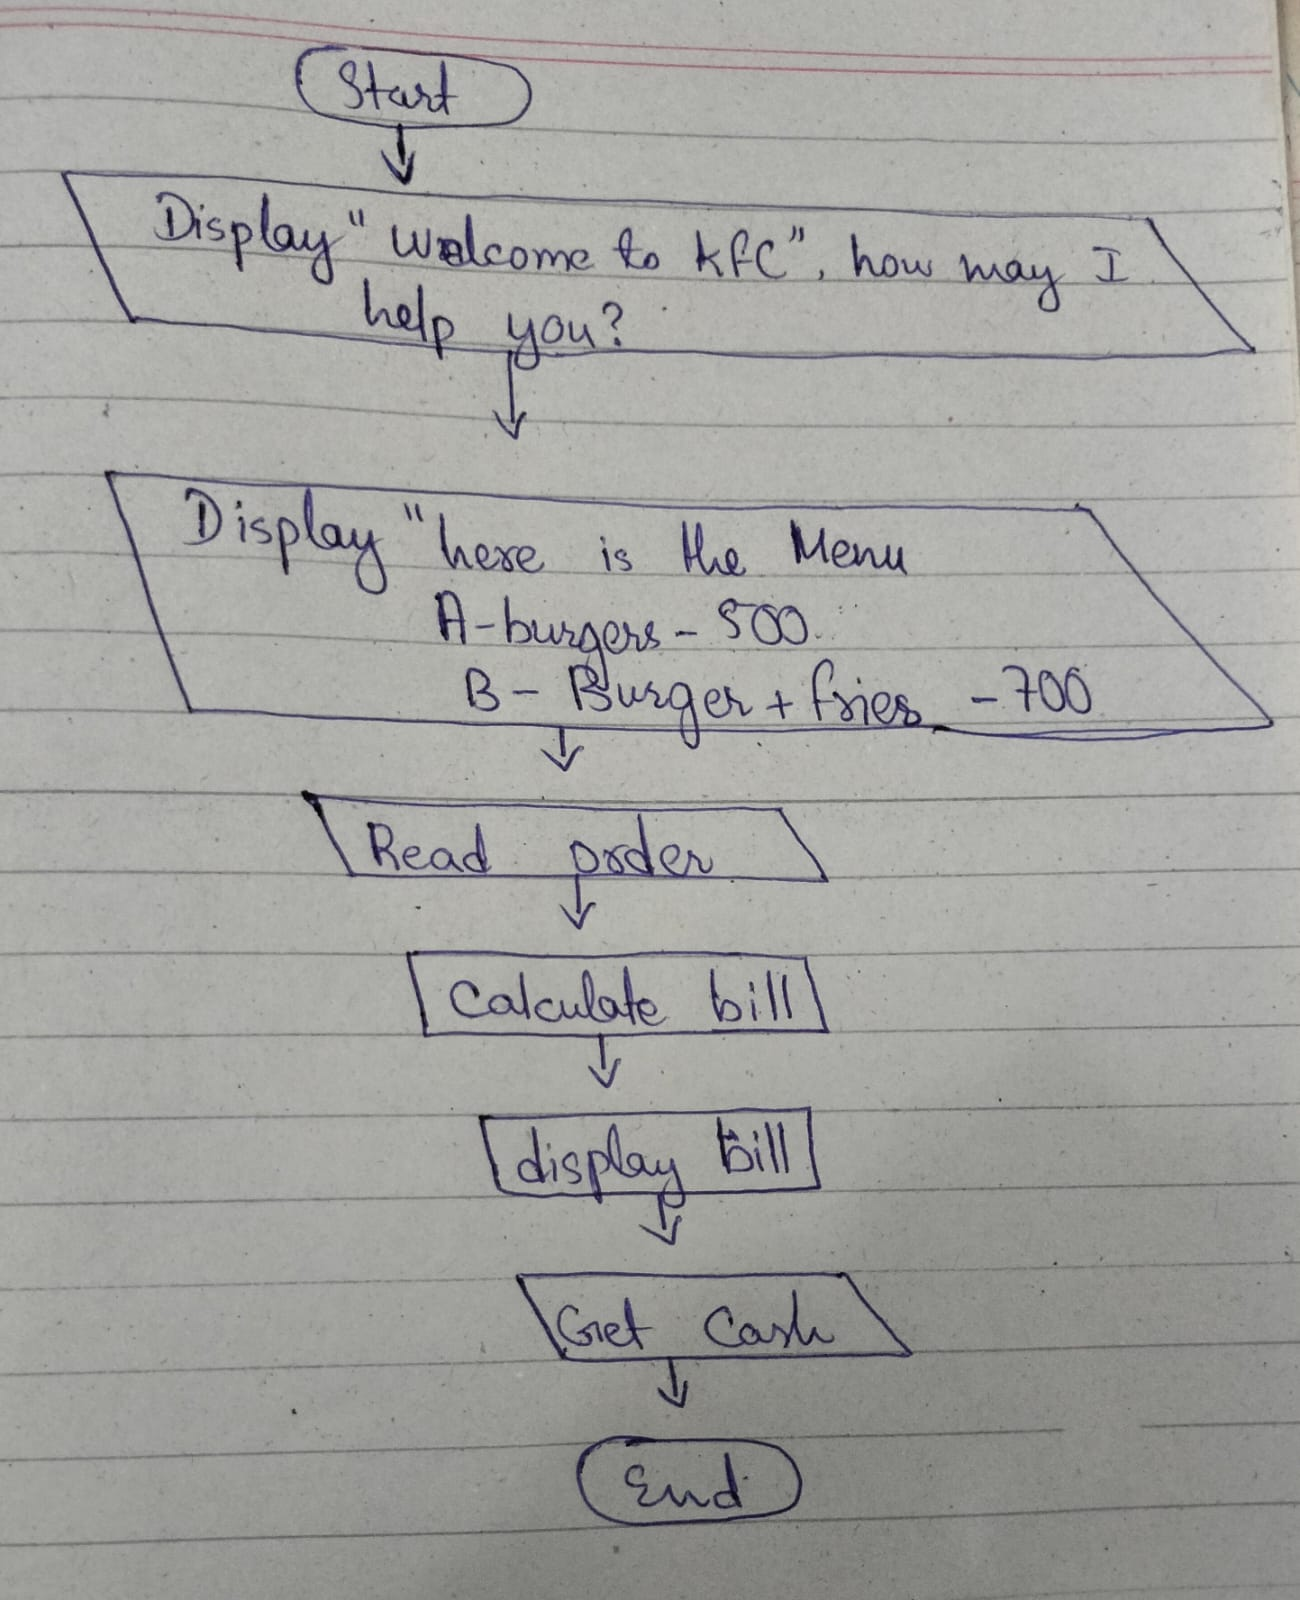 Start
Display "Welcome to kfC", how may I
help you?
Display "here is the Menu
A-burgers - 500
B - Burger + fries - 700
Read order
Calculate bill
display bill
Get Cash
End